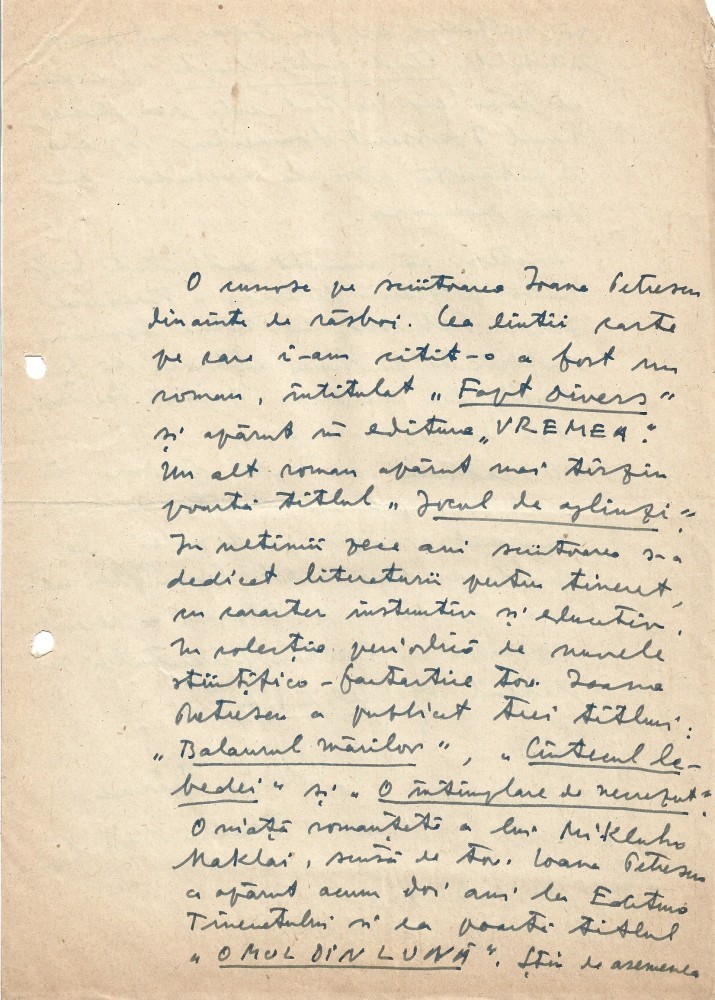 O cunosc pe scriitoarea Ioana Petrescu
dinainte de răsboi. Cea dintîi carte
pe care i-am citit-o a fost un
roman, intitulat „Fapt divers“
și apărut în editura „VREMEA“.
Un alt roman apărut mai tîrziu
poartă titlul „Jocul de oglinzi“.
În ultimii zece ani scriitoarea s-a
dedicat literaturii pentru tineret,
cu caracter instructiv și educativ.
În colecția periodică de nuvele
științifico-fantastice tov. Ioana
Petrescu a publicat trei titluri:
„Balaurul mărilor“, „Cîntecul le-
bedei“ și „O întîmplare de necrezut“.
O viață romanțată a lui Mikluho
Maklai, scrisă de tov. Ioana Petrescu
a apărut acum doi ani la Editura
Tineretului și ea poartă titlul
„OMUL DIN LUNĂ“. Știu de asemenea